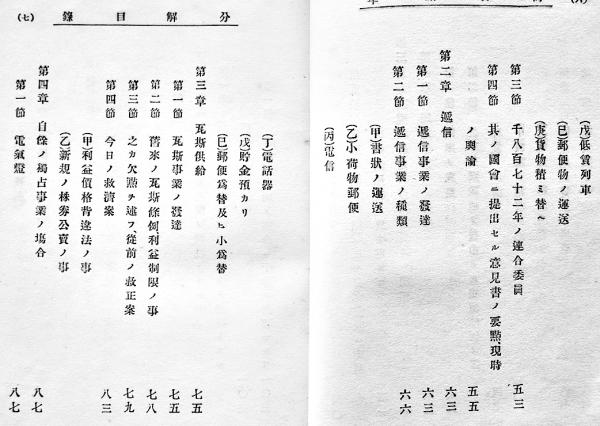 (戊)低賃列車
(巳)郵便物ノ運送
(庚)貨物積ミ替ヘ
第三節 千八百七十二年ノ連合委員 五三
第四節 其ノ國會ニ提出セル意見書ノ要點、現時
ノ輿論 五五
第二章 遞信 六三
第一節 遞信事業ノ發達 六三
第二節 遞信事業ノ種類 六六
(甲)書狀ノ運送
(乙)小荷物郵便
(丙)電信
分解目錄 (七)
(丁)電話器
(戊)貯金預カリ
(巳)郵便爲替及ヒ小爲替
第三章 瓦斯供給 七五
第一節 瓦斯事業ノ發達 七五
第二節 舊來ノ瓦斯條例利益制限ノ事 七八
第三節 之カ欠點ヲ述フ、從前ノ救正案 七九
第四節 今日ノ救濟案 八三
(甲)利益價格背違法ノ事
(乙)新規ノ株券公賣ノ事
第四章 自餘ノ獨占事業ノ塲合 八七
第一節 電氣燈 八七